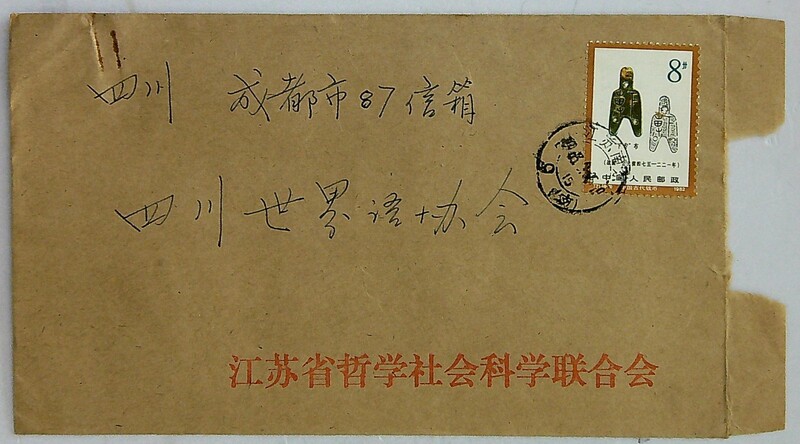 四川 成都市87信箱
四川世界语协会
江苏省哲学社会科学联合会
8分
中国人民邮政
1982